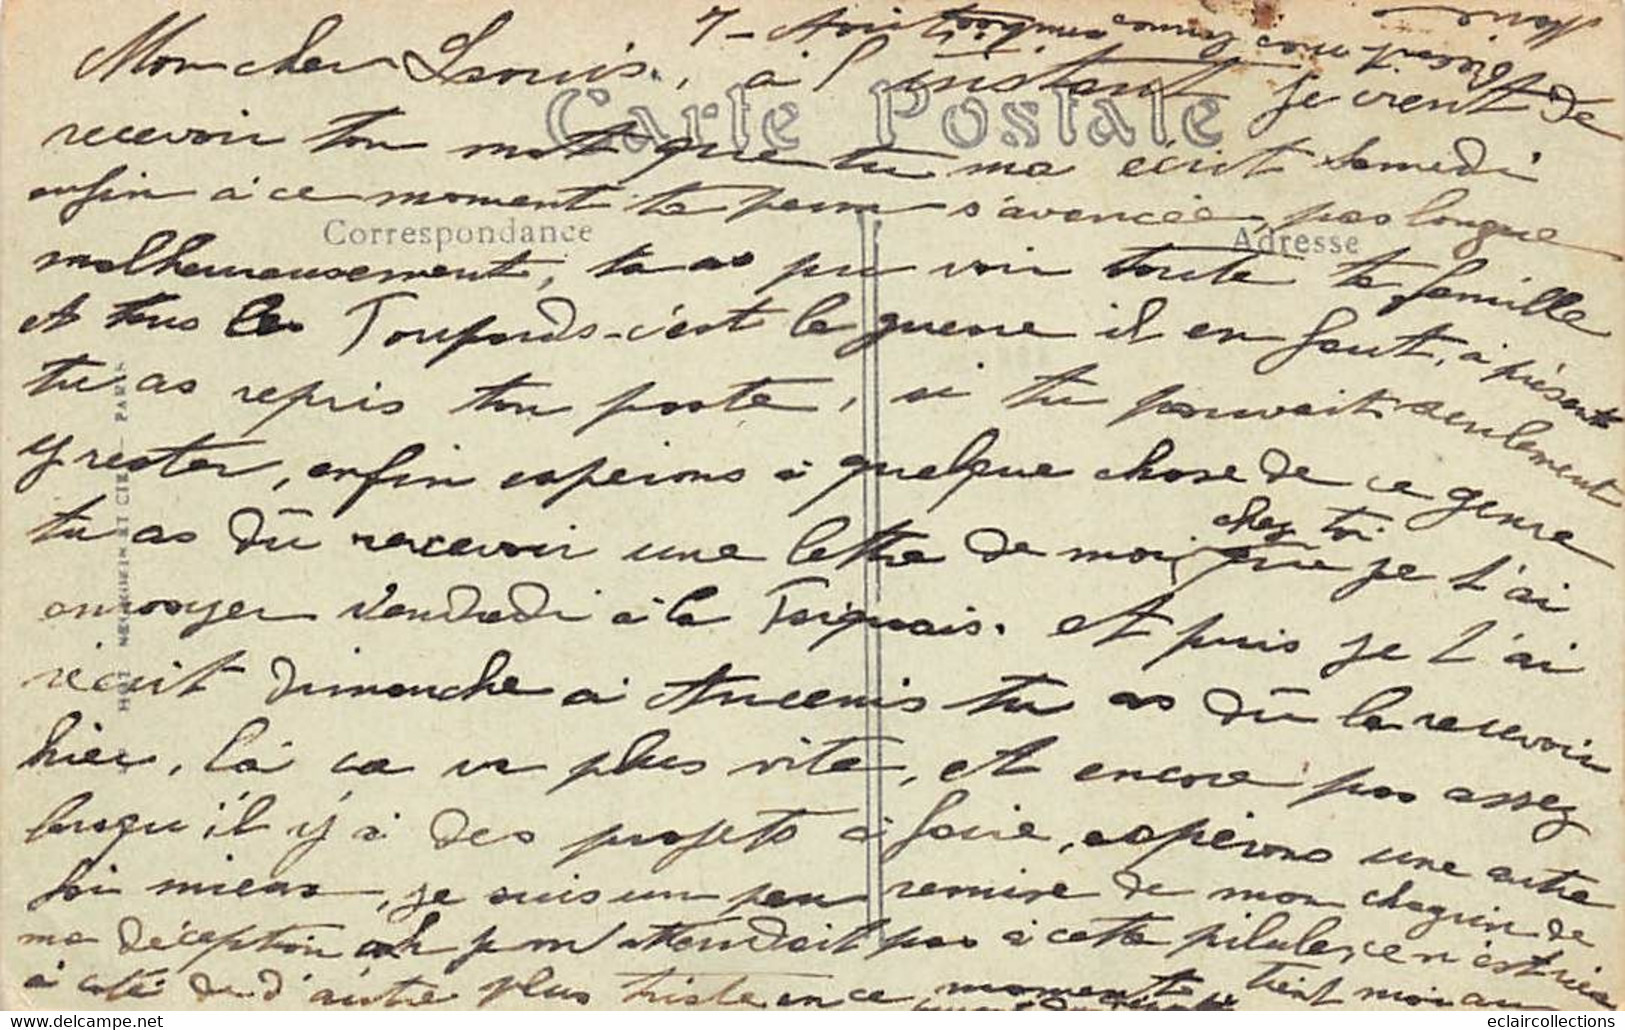 Mon cher Louis, à l'instant je vient de
Carte Postale
recevoir ton mot que tu ma écrit Samedi
enfin à ce moment ta perm s'avancée, pas longue
Correspondance
Adresse
malheureusement, ta as pu voir toute ta famille
et tous les c'est la guerre il en faut, à présent
tu as repris ton poste, si tu pouvait seulement
y rester, enfin esperons à quelque chose de ce genre
chez toi
tu as dû recevoir une lettre de moi, que je t'ai
envoyer Vendredi à la et puis je t'ai
récrit dimanche à Ancenis tu as dû la recevoir
hier, là ca va plus vite, et encore pas assez
lorsqu'il y à des projets à faire, espérons une autre
foi mieux, je suis un peu remise de mon chagrin de
ma déception ah je m'attendait pas à cette pilule, ce n'est rien
à coté de d'autre plus triste en ce moment tient moi au
PARIS
eclaircollections